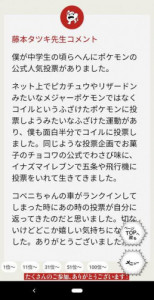 藤本タツキ先生コメント
僕が中学生の頃らへんにポケモンの
公式人気投票がありました。
ネット上でピカチュウやリザードン
みたいなメジャーポケモンではなく
コイルというふざけたポケモンに投
票しようみたいなふざけた運動があ
り、僕も面白半分でコイルに投票し
ました。同じような投票企画でお菓
子のチョコワの公式でわさび味に、
イナズマイレブンで五条や飛行機に
投票をいれて生きてきました。
コベニちゃんの車がランクインして
しまった時あの時の投票が自分に
返ってきたのだと思いました。切な
いけどどこか嬉しい気持ちにな
した。ありがとうございま
TOP
メニュー
1位〜 11位〜 31位〜 51位〜 100位〜
たくさんのご参加、ありがとうございます!